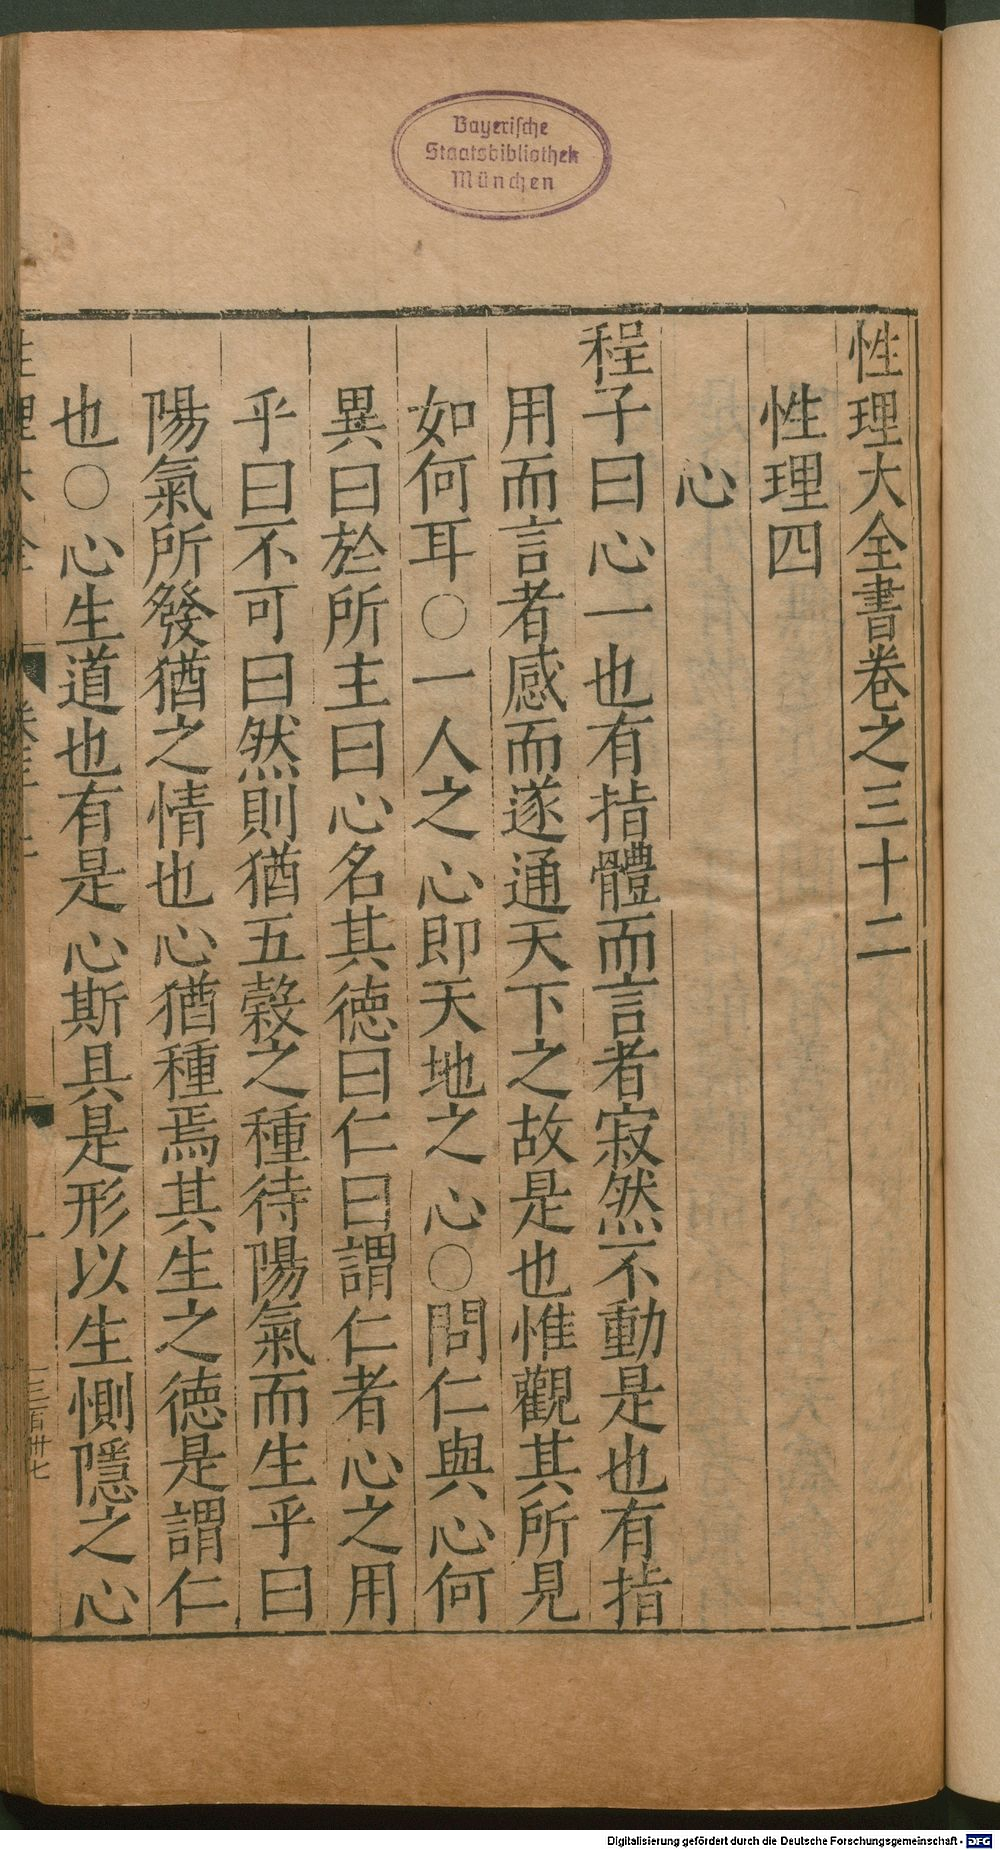 Bayerische
Staatsbibliothek
München
性理大全書卷之三十二
性理四
心
程子曰心一也有指體而言者寂然不動是也有指
用而言者感而遂通天下之故是也惟觀其所見
如何耳○一人之心即天地之心○問仁與心何
異曰於所主曰心名其德曰仁曰謂仁者心之用
乎曰不可曰然則猶五穀之種待陽氣而生乎曰
陽氣所發猶之情也心猶種焉其生之德是謂仁
也○心生道也有是心斯具是形以生惻隱之心
一
三百卅七
Digitalisierung gefördert durch die Deutsche Forschungsgemeinschaft - DFG